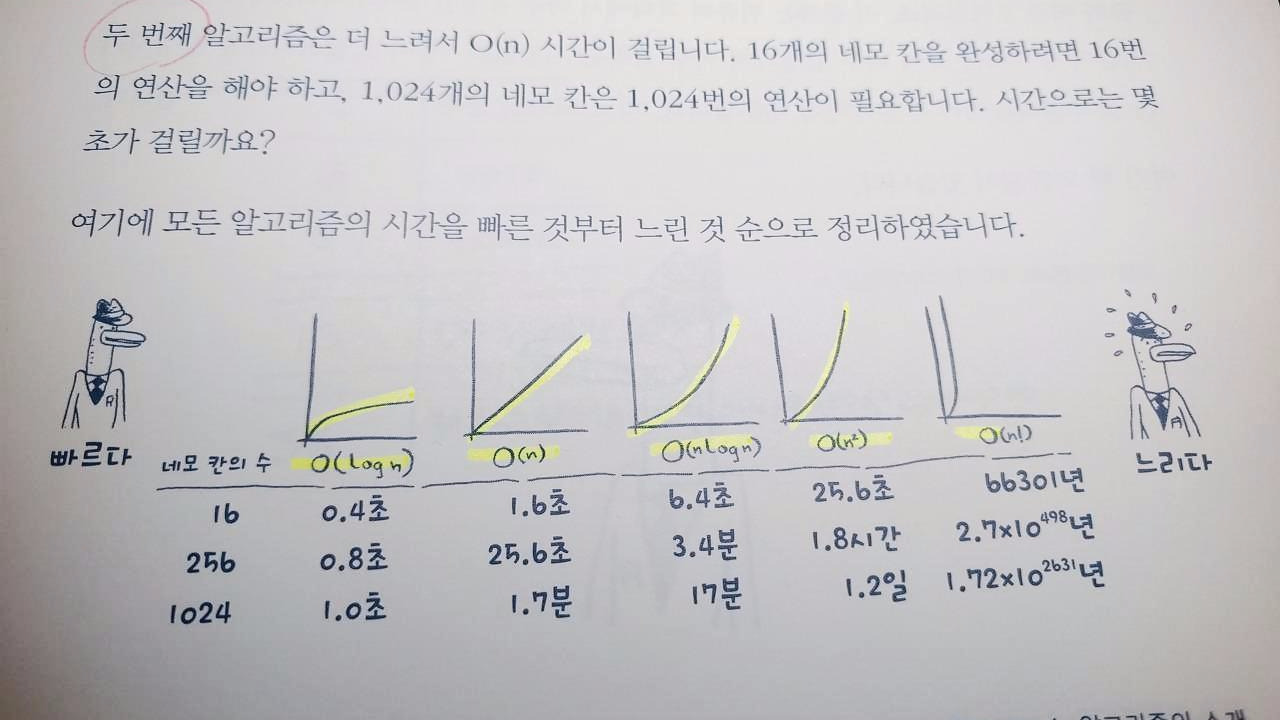 두 번째 알고리즘은 더 느려서 O(n) 시간이 걸립니다. 16개의 네모 칸을 완성하려면 16번
의 연산을 해야 하고, 1,024개의 네모 칸은 1,024번의 연산이 필요합니다. 시간으로는 몇
초가 걸릴까요?
여기에 모든 알고리즘의 시간을 빠른 것부터 느린 것 순으로 정리하였습니다.
빠르다
느리다
네모 칸의 수 O(log n) O(n) O(n log n) O(n²) O(n!)
16 0.4초 1.6초 6.4초 25.6초 66301년
256 0.8초 25.6초 3.4분 1.8시간 2.7x10⁴⁹⁸년
1024 1.0초 1.7분 17분 1.2일 1.72x10²⁶³¹년
알고리즘의 소개